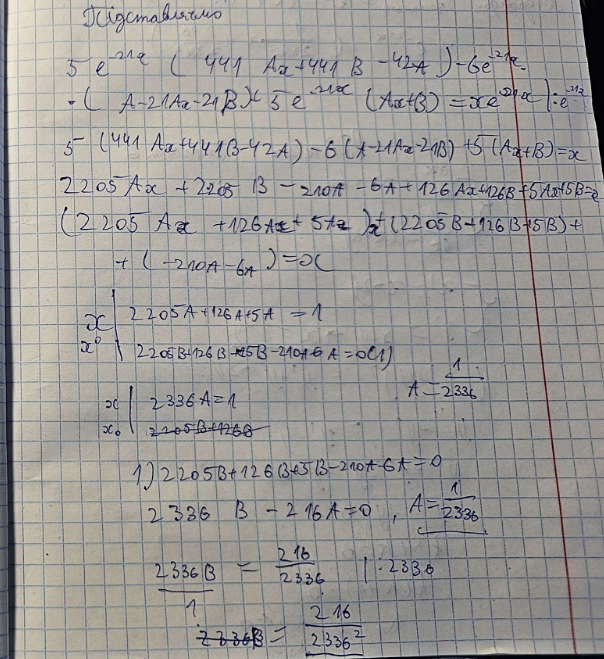 Підставляємо
5e^{-21x} (441 Ax+441B-42A)-6e^{-21x}.
·(A-21Ax-21B)+5e^{-21x} (Ax+B)=xe^{-21x} |:e^{-21x}
5(441Ax+441B-42A)-6(A-21Ax-21B)+5(Ax+B)=x
2205Ax+2205B-210A-6A+126Ax+126B+5Ax+5B=x
(2205Ax+126Ax+5Ax)x+(2205B+126B+5B)+
+(-210A-6A)=x
x | 2205A+126A+5A=1
x⁰ | 2205B+126B+5B-210A-6A=0(1)
x | 2336A=1
A=1/2336
x₀ | 2205B+126B
1) 2205B+126B+5B-210A-6A=0
2336 B-216A=0, A=1/2336
2336B/1 = 216/2336 |:2336
2336B = 216/2336²